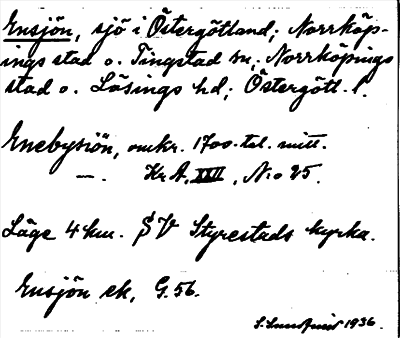 Ensjön, sjö i Östergötland; Norrköp-
ings stad o. Tingstad sn, Norrköpings
stad o. Lösings hd; Östergötl. l.
Enebysiön, omkr. 1700-tal. mitt.
—  Kr A. XXII, N:o 25.
Läge 4 km. SV Styrestads kyrka.
Ensjön ek, G. 56.
1936